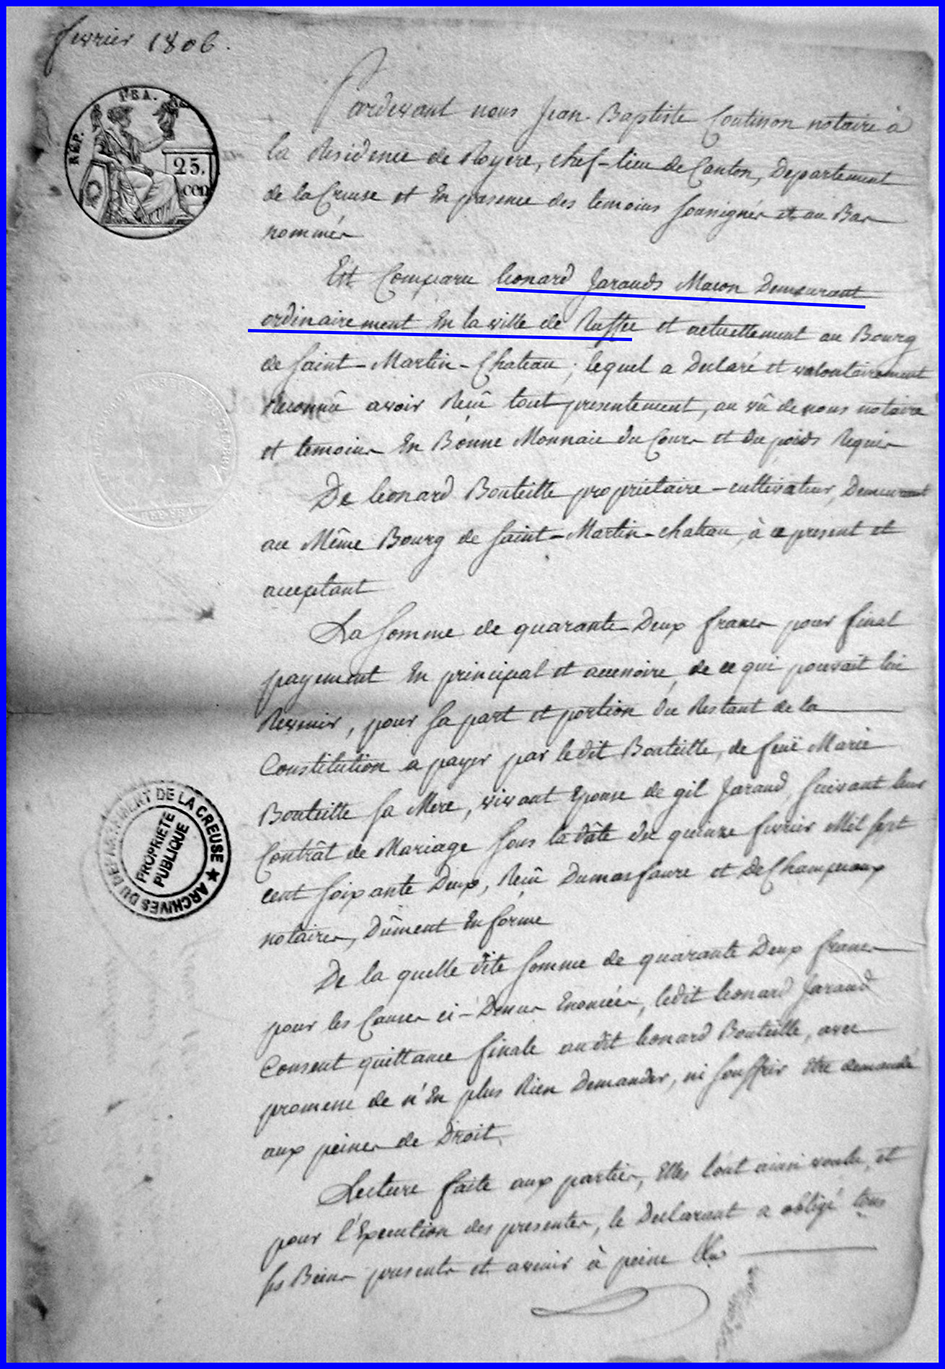 fevrier 1806.
REP. FRA.
25.
cen
Pardevant nous Jean-Baptiste Coutisson notaire à
la Residence de Royere, chef-lieu de Canton, Departement
de la Creuse et En presence des temoins soussignés et au Bas
nommés
Est Comparu leonard Jarauds Maçon Demeurant
ordinairement En la ville de Ruffec et actuellement au Bourg
de Saint-Martin-Chateau; lequel a Declaré et volontairement
Reconnû avoir Reçû tout presentement, au vû de nous notaire
et temoins En Bonne Monnaie du Cours et du poids Requis
De leonard Bouteille proprietaire-cultivateur, Demeurant
au Même Bourg de Saint-Martin-chateau, à ce present et
acceptant
La somme de quarante-Deux francs pour final
payement En principal et accessoire, de ce qui pouvait lui
Revenir, pour sa part et portion du Restant de la
Constitution a payer par ledit Bouteille, de feüe Marie
Bouteille sa Mere, vivant Epouse de gil Jaraud, suivant leur
Contrât de Mariage sous la dâte du quinze fevrier Mil sept
cent soixante Deux, Reçû Dumasfaure et DeChampeaux
notaires, Dûment En forme
De la quelle dite somme de quarante Deux francs
pour les Causes ci-Dessus Enoncées, ledit leonard Jaraud
Consent quittance finale au dit leonard Bouteille, avec
promesse de n'En plus Rien Demander, ni souffrir Etre demandé
aux peines de Droit.
Lecture faite aux parties, Elles l'ont ainsi voulu, et
pour l'Execution des presentes, le Declarant a obligé tous
ses Biens presents et avenir à peine
ARCHIVES DU DEPARTEMENT DE LA CREUSE
PROPRIETE
PUBLIQUE